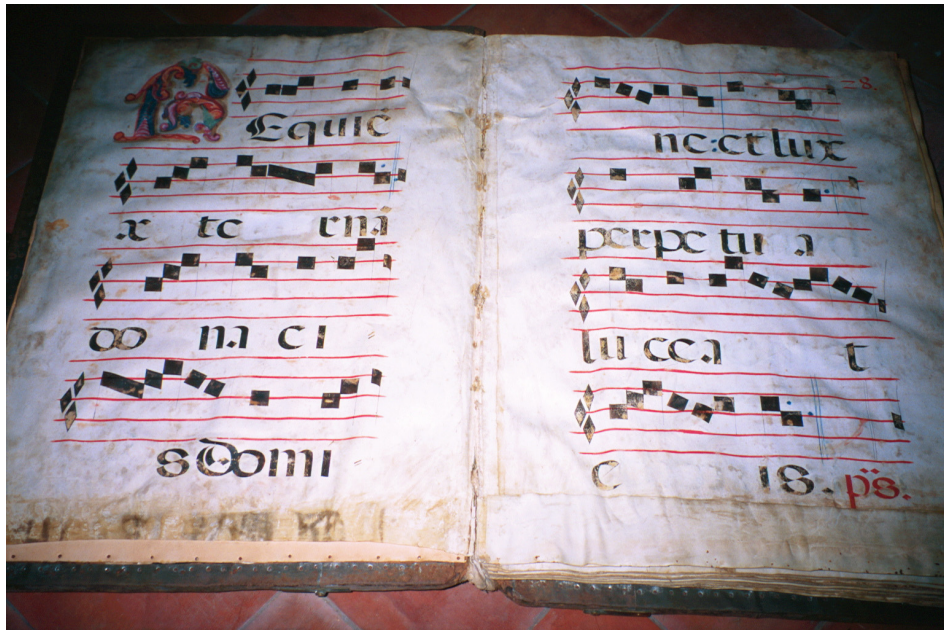 REquiē
æ te rna
do na ei
s domi
ne: et lux
perpetu a
lu cea t
e is. ps.